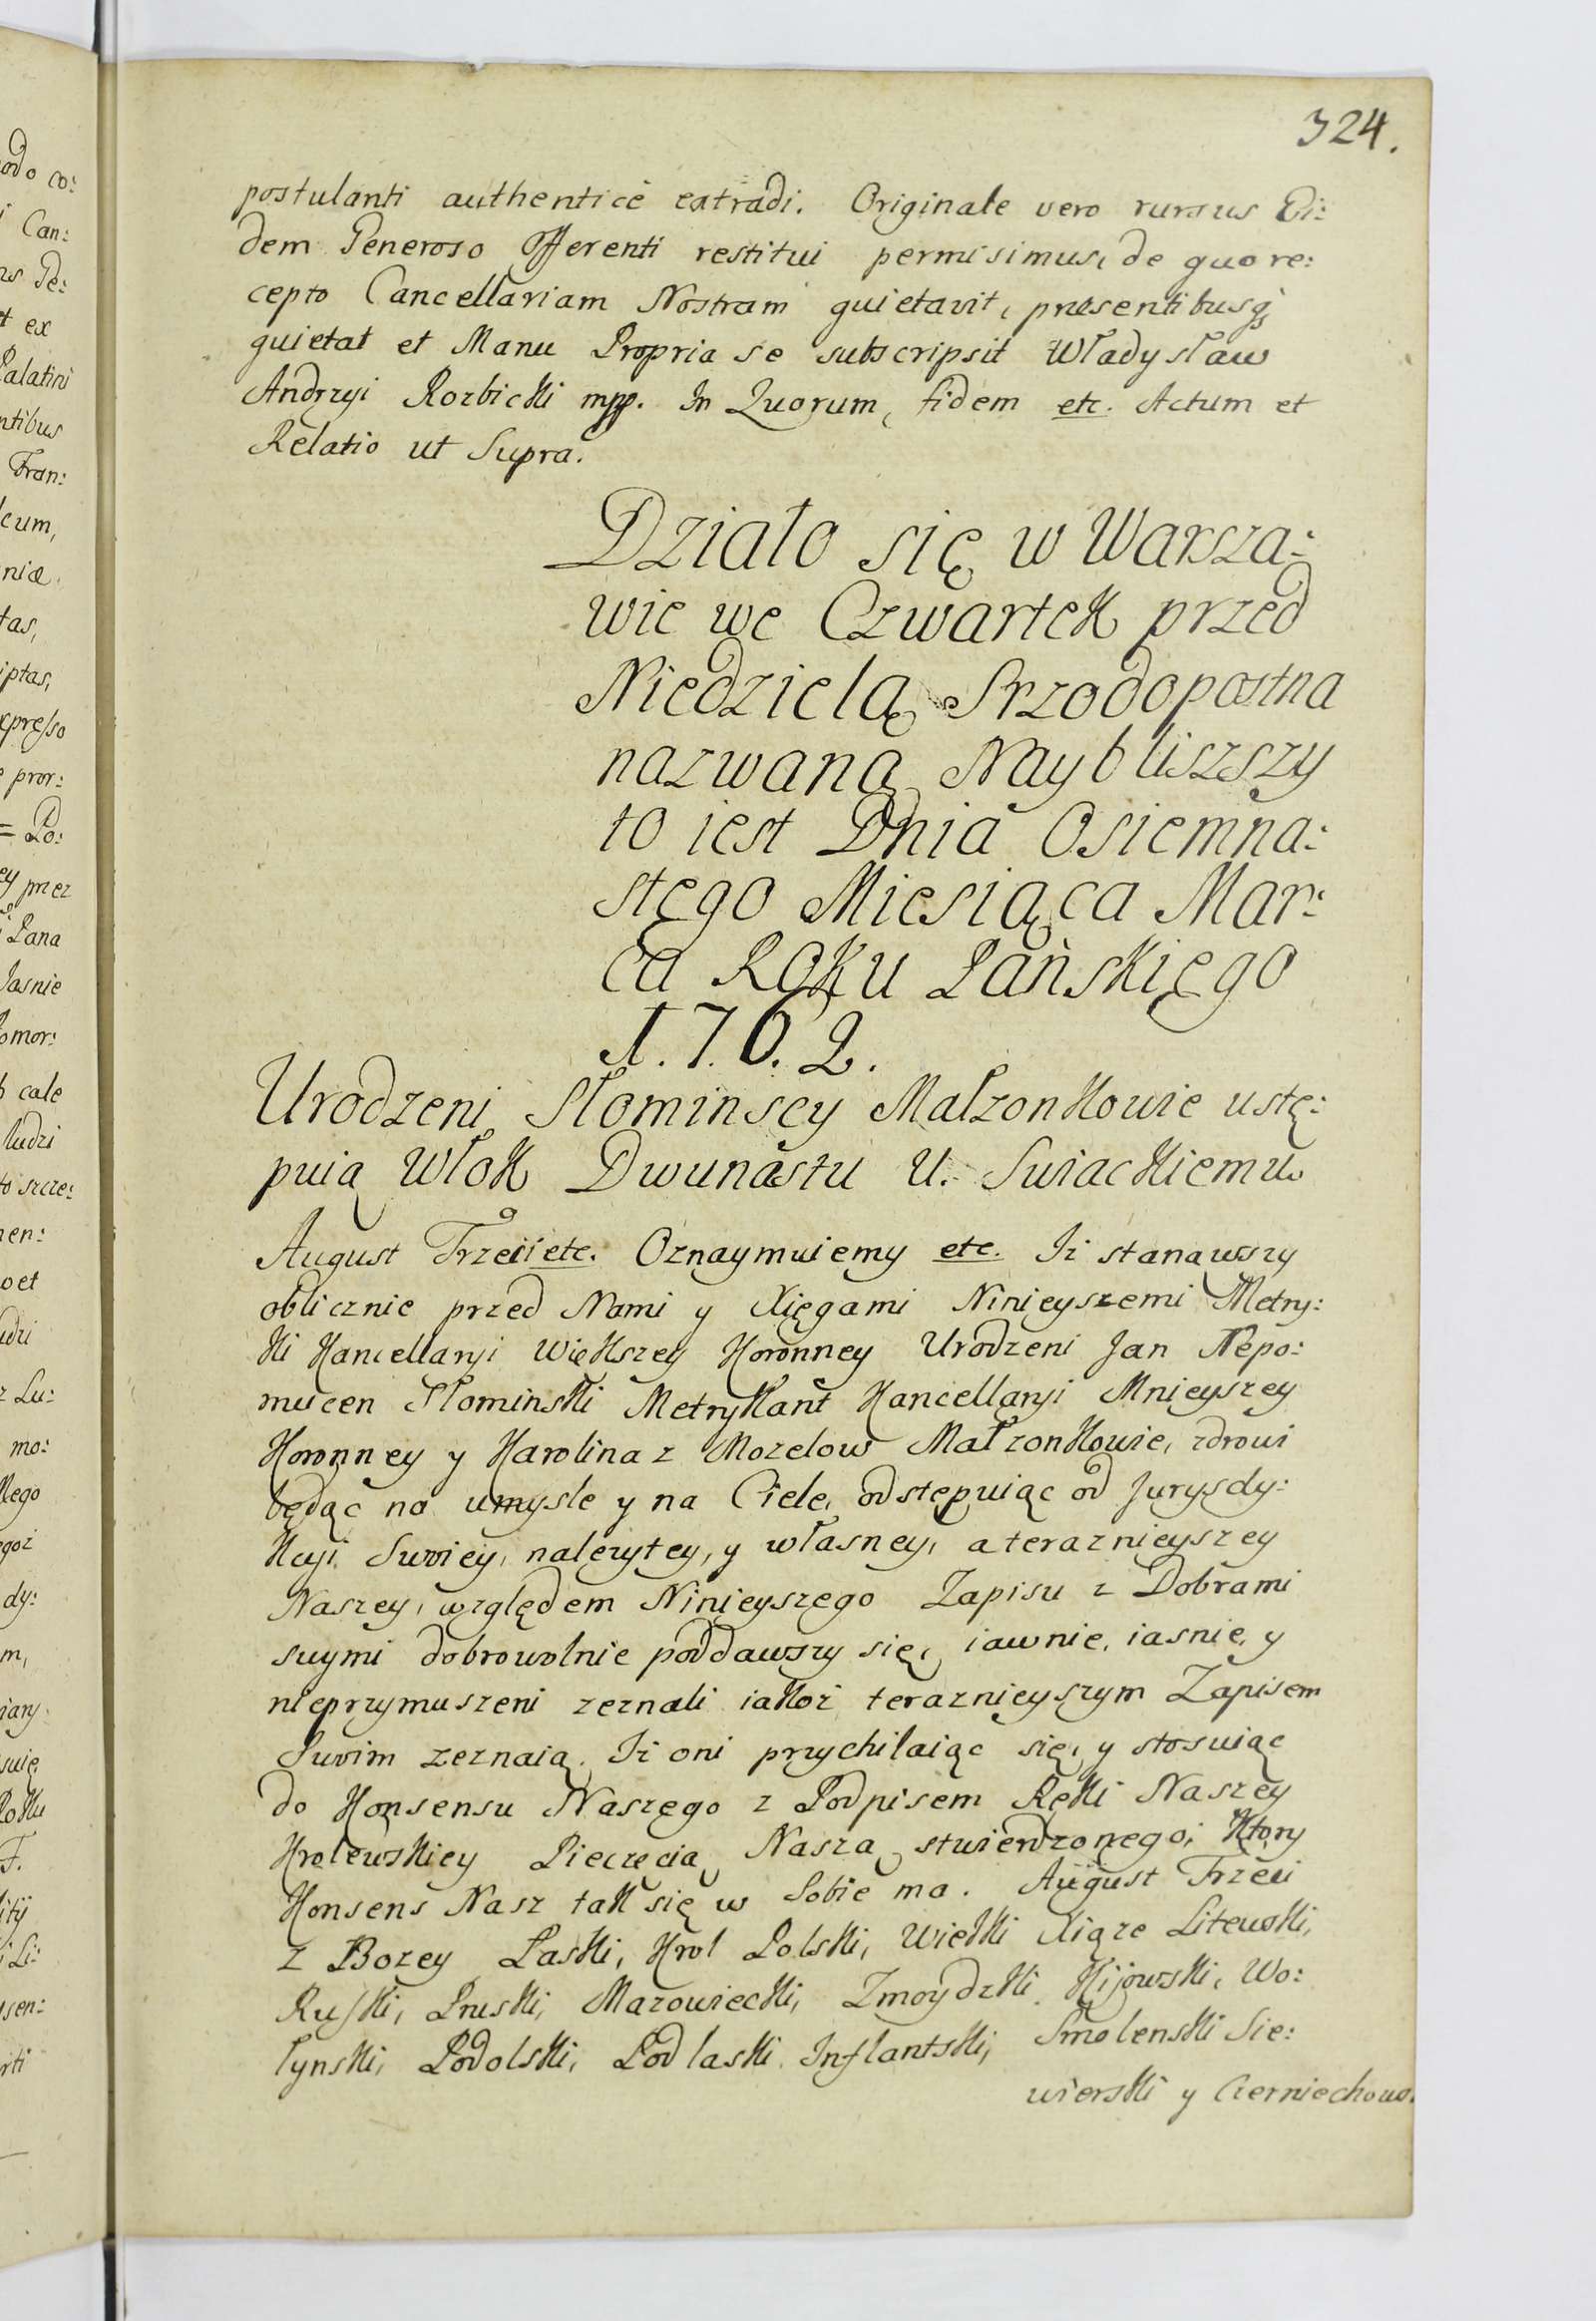 324.
postulanti authenticè extradi. Originale vero rursus Ei:
dem Generoso Offerenti restitui permisimus, de quo re:
cepto Cancellariam Nostram quietavit, præsentibusq;
quietat et Manu Propria se subscripsit Władysław
Andrzyi Rozbicki mpp. In Quorum, fidem etc. Actum et
Relatio ut Supra.
Działo się w Warsza:
wie we Czwartek przed
Niedzielą Srzodopostna
nazwaną Naybliszszy
to iest Dnia Osiemna:
stego Miesiąca Mar:
ca Roku Pańskiego
1.7.6.2.
Urodzeni Słominscy Małzonkowie ustę:
puią Włok Dwunastu U. Swiackiemu
August Trzeci etc. Oznaymuiemy etc. Iż stanąwszy
oblicznie przed Nami y Xięgami Ninieyszemi Metry:
ki Kancellaryi Większey Koronney Urodzeni Jan Nepo:
mucen Słominski Metrykant Kancellaryi Mnieyszey
Koronney y Karolina z Mozelow Małzonkowie, zdrowi
będąc na umysle y na Ciele, odstępuiąc od Jurysdy:
kcyi Swoiey, należytey, y własney, a teraznieyszey
Naszey, względem Ninieyszego Zapisu z Dobrami
swymi dobrowolnie poddawszy się, iawnie, iasnie, y
nieprzymuszeni zeznali iakoż teraznieyszym Zapisem
Swoim zeznaią. Iż oni przychilaiąc się, y stosuiąc
do Konsensu Naszego z Podpisem Ręki Naszey
Krolewskiey Pieczęcią Naszą stwierdzonego, Ktory
Konsens Nasz tak się w Sobie ma. August Trzeci
z Bozey Łaski, Krol Polski, Wielki Xiąze Litewski,
Ruski, Pruski, Mazowiecki, Zmoydzki, Kijowski, Wo:
łynski, Podolski, Podlaski, Inflantski, Smolenski Sie:
wierski y Czerniechow.